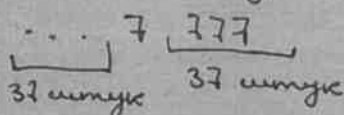 ... 7 777
37 штук 37 штук